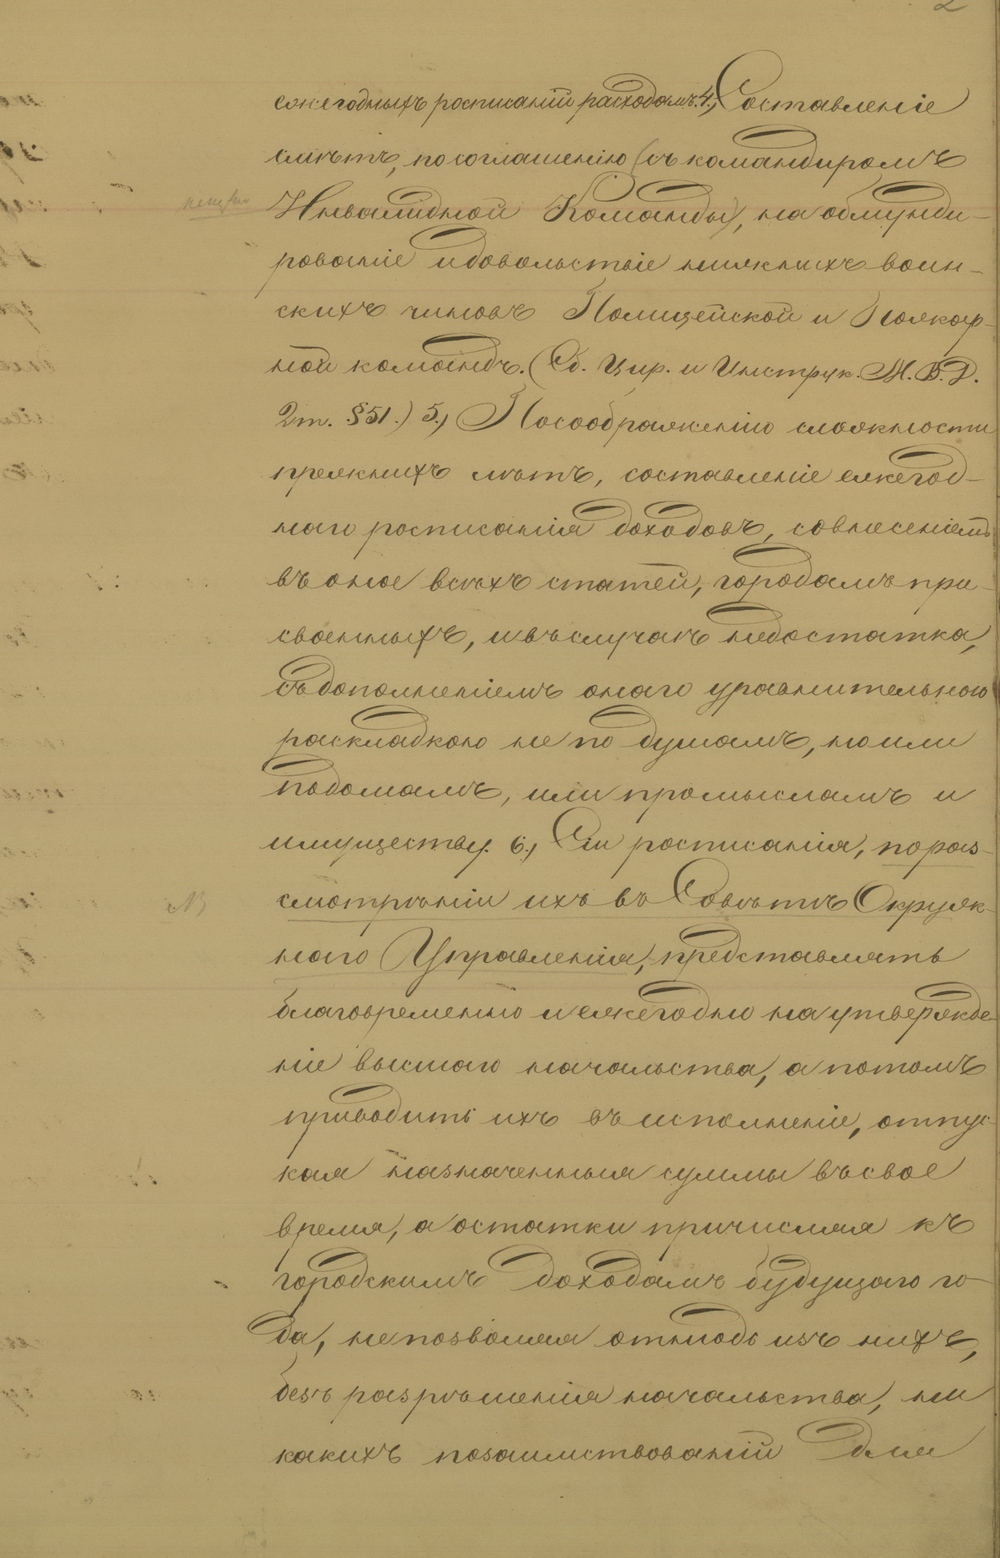 2
ежегодныхъ росписаній расходамъ. 4., Составленіе
смѣтъ, по соглашенію (съ командиромъ
Инвалидной Команды), на обмунди-
рованіе и довольствіе нижнихъ воин-
скихъ чиновъ Полицейской и Пожар-
ной командъ. (Сб. Цир. и Инструк. М. В. Д.
2 т. § 51.) 5., По соображенію сложности
прежнихъ лѣтъ, составленіе ежегод-
наго росписанія доходовъ, со внесеніемъ
въ оное всѣхъ статей, городамъ при-
своенныхъ, и въ случаѣ недостатка,
съ дополненіемъ онаго уравнительною
раскладкою не по душамъ, но или
по домамъ, или промысламъ и
имуществу. 6., Сіи росписанія, по раз-
смотрѣніи ихъ въ Совѣтѣ Окруж-
наго Управленія, представлять
благовременно и ежегодно на утвержде-
ніе высшаго начальства, а потомъ
приводить ихъ въ исполненіе, отпус-
кая назначенныя суммы въ свое
время, а остатки причисляя къ
городскимъ доходамъ будущаго го-
да, не позволяя отнюдь изъ нихъ,
безъ разрѣшенія начальства, ни
какихъ позаимствованій для